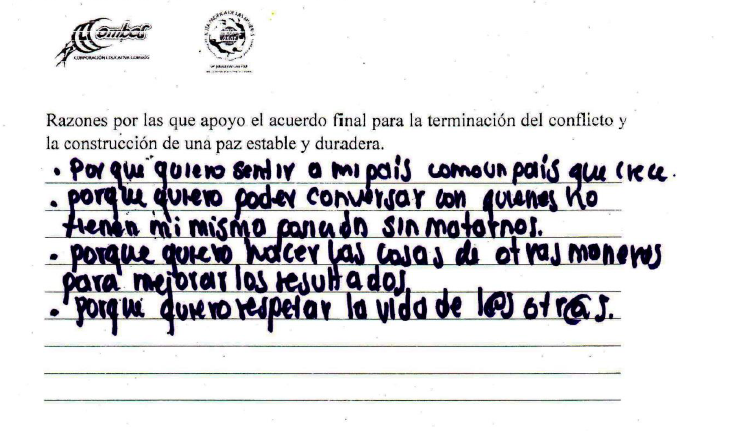 Combos
CORPORACIÓN EDUCATIVA COMBOS
Razones por las que apoyo el acuerdo final para la terminación del conflicto y
la construcción de una paz estable y duradera.
• Porque quiero sentir a mi país como un país que crece.
• porque quiero poder conversar con quienes no
tienen mi misma
sin matarnos.
• porque quiero hacer las cosas de otras maneras
para mejorar los resultados.
• porque quiero respetar la vida de l@s otr@s.